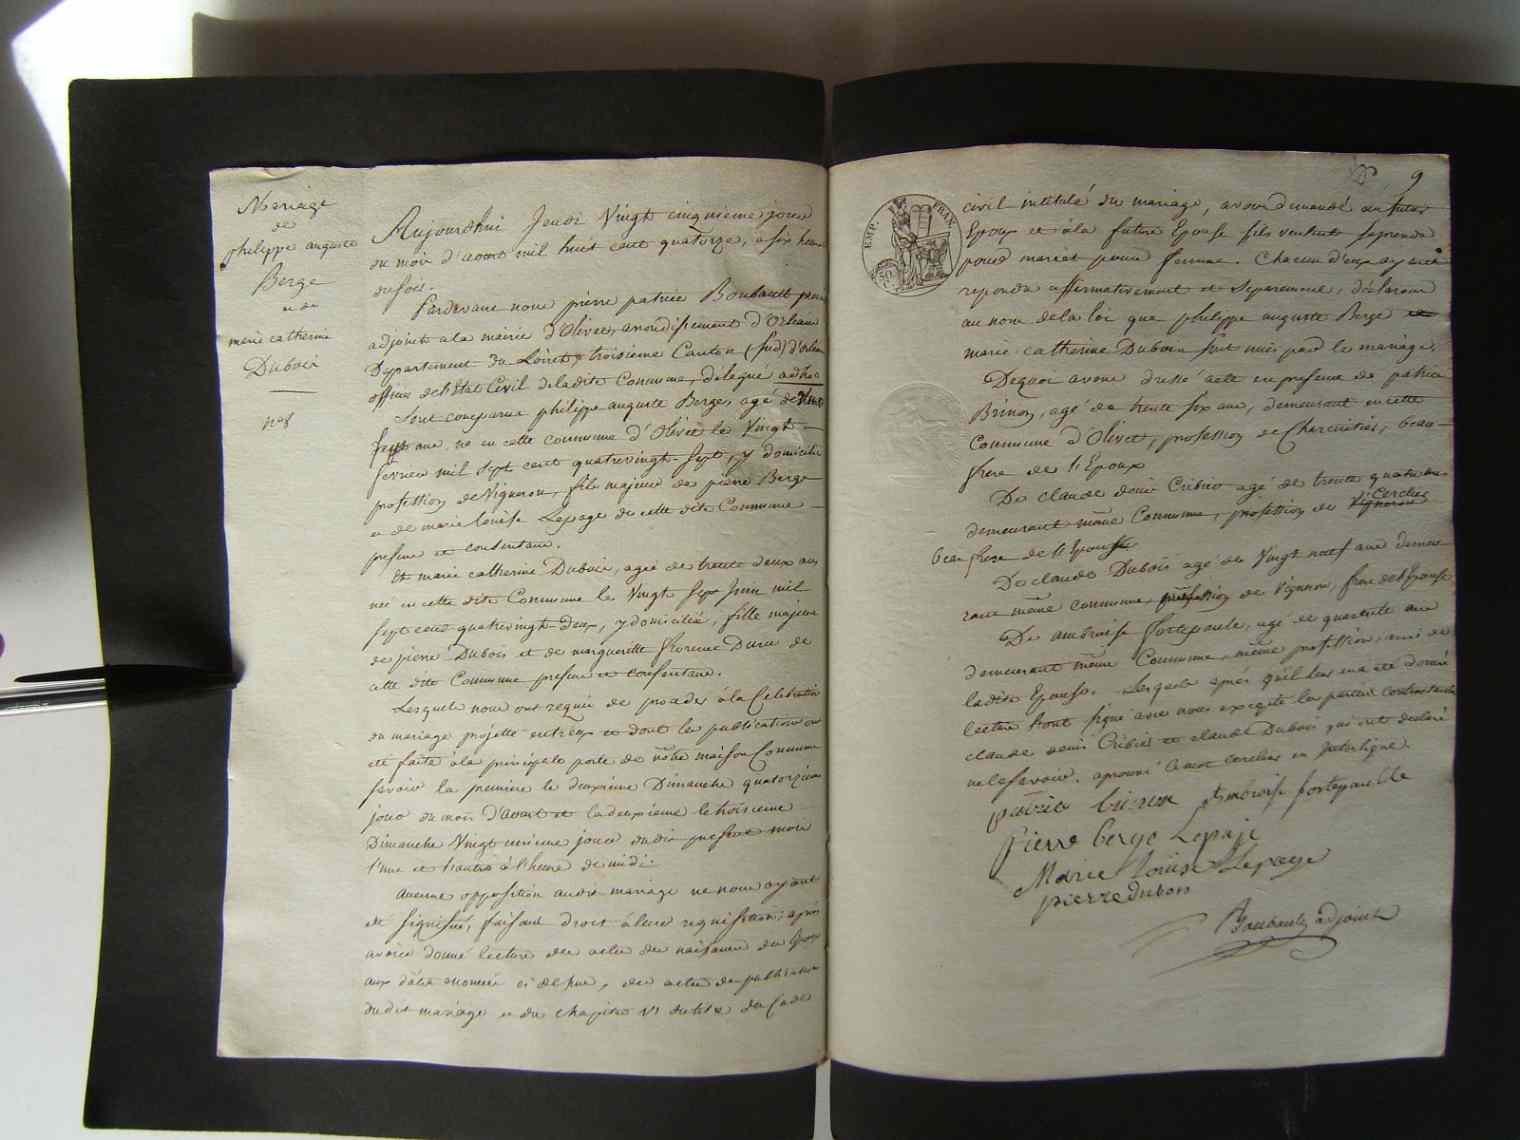 Mariage
de
philippe auguste
Berge
et de
marie catherine
Dubois
n° 8
Aujourdhui Jeudi Vingt cinquieme jour
du mois d'aout mil huit cent quatorze, a six heures
du soir.
Pardevant nous pierre patrice Boubault
adjoint a la mairie d'Olivet, arrondissement d'Orleans
Departement du Loiret, troisieme Canton (sud) d'Orleans
officier de l'Etat Civil de la dite Commune, délegué ad hoc
Sont comparus philippe auguste Berge, agé de Vingt
sept ans, né en cette commune d'Olivet le Vingt
fevrier mil sept cent quatrevingt-sept, y domicilié
profession de Vigneron, fils majeur de pierre Berge
et de marie louise Lepage de cette dite Commune
present et consentans.
Et marie catherine Dubois, agée de trente deux ans
née en cette dite Commune le Vingt sept Juin mil
sept cent quatrevingt-deux, y domiciliée, fille majeure
de pierre Dubois et de marguerite florence Duru de
cette dite Commune present et consentans.
Lesquels nous ont requis de proceder à la Celebration
du mariage projetté entr'eux et dont les publications ont
eté faite à la principale porte de nôtre maison Commune
savoir la premiere le deuxieme Dimanche quatorzieme
jour du mois d'aout et la deuxieme le troisieme
Dimanche Vingt unieme jour du dit present mois
l'une et l'autre à l'heure de midi.
Aucune opposition au dit mariage ne nous ayant
été signifiée, faisant droit à leur requisition; après
avoir donné lecture des actes de naissance des Epoux
aux dates enoncées ci dessus, des actes de publication
du dit mariage et du chapitre VI du titre du Code
9
EMP. FRAN
50
civil intitulé du mariage, avons demandé au futur
Epoux et à la future Epouse s'ils veulent se prendre
pour mari et pour femme. Chacun d'eux ayant
repondu affirmativement et separement, declarons
au nom de la loi que philippe auguste Berge et
marie catherine Dubois sont unis par le mariage.
Dequoi avons dressé acte en presence de patrice
Brinon, agé de trente six ans, demeurant en cette
Commune d'Olivet, profession de Charcutier, beau-
frere de l'Epoux
De claude denis Cribier agé de trente quatre ans
demeurant même Commune, profession de Vigneron Cerclier
beau frere de l'Epouse
De claude Dubois agé de Vingt neuf ans demeu-
rant même commune, profession de Vigneron, frere de l'Epouse
De ambroise fortepaule, agé de quarente ans
demeurant même Commune, même profession, ami de
la dite Epouse. Lesquels après qu'il leur en a été donné
lecture l'ont signé avec nous excepté les parties Contractantes
claude denis Cribier et claude Dubois qui ont declaré
ne le savoir. aprouvé le mot cerclier en interligne.
patrice brinon Ambroise fortepaulle
Pierre berge Lepaje
Marie Louise Lepage
pierre dubois
Boubault adjoint